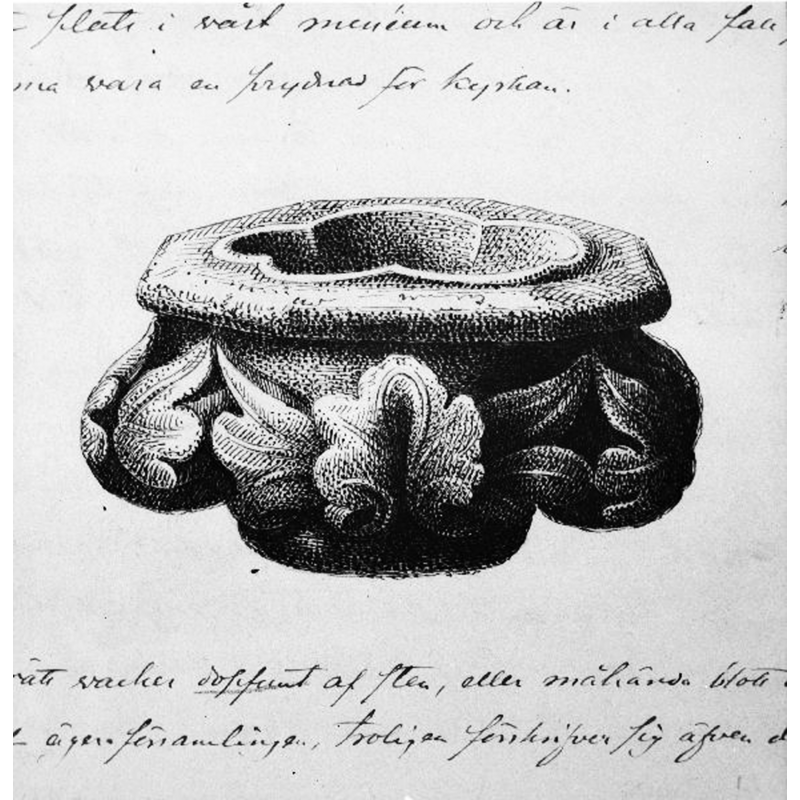 plats i vårt museum och är i alla fall
vara en prydnad för kyrkan.
vacker dopfunt af sten, eller måhända blott
äger församlingen, troligen förskrifver sig äfven